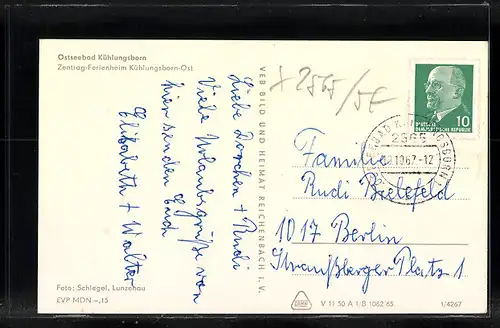 Ostseebad Kühlungsborn
Zentrag-Ferienheim Kühlungsborn-Ost
Liebe Dorchen + Rudi
Viele Urlaubsgrüße von
hier senden Euch
Elisabeth + Walter
Foto: Schlegel, Lunzenau
EVP MDN –,15
VEB BILD UND HEIMAT REICHENBACH I. V.
x 2565/5E
10
DEUTSCHE
DEMOKRATISCHE REPUBLIK
2565
10.67-12
Familie
Rudi Bielefeld
1017 Berlin
Straußberger Platz 1
V 11 50 A 1/B 1062/65
1/4267